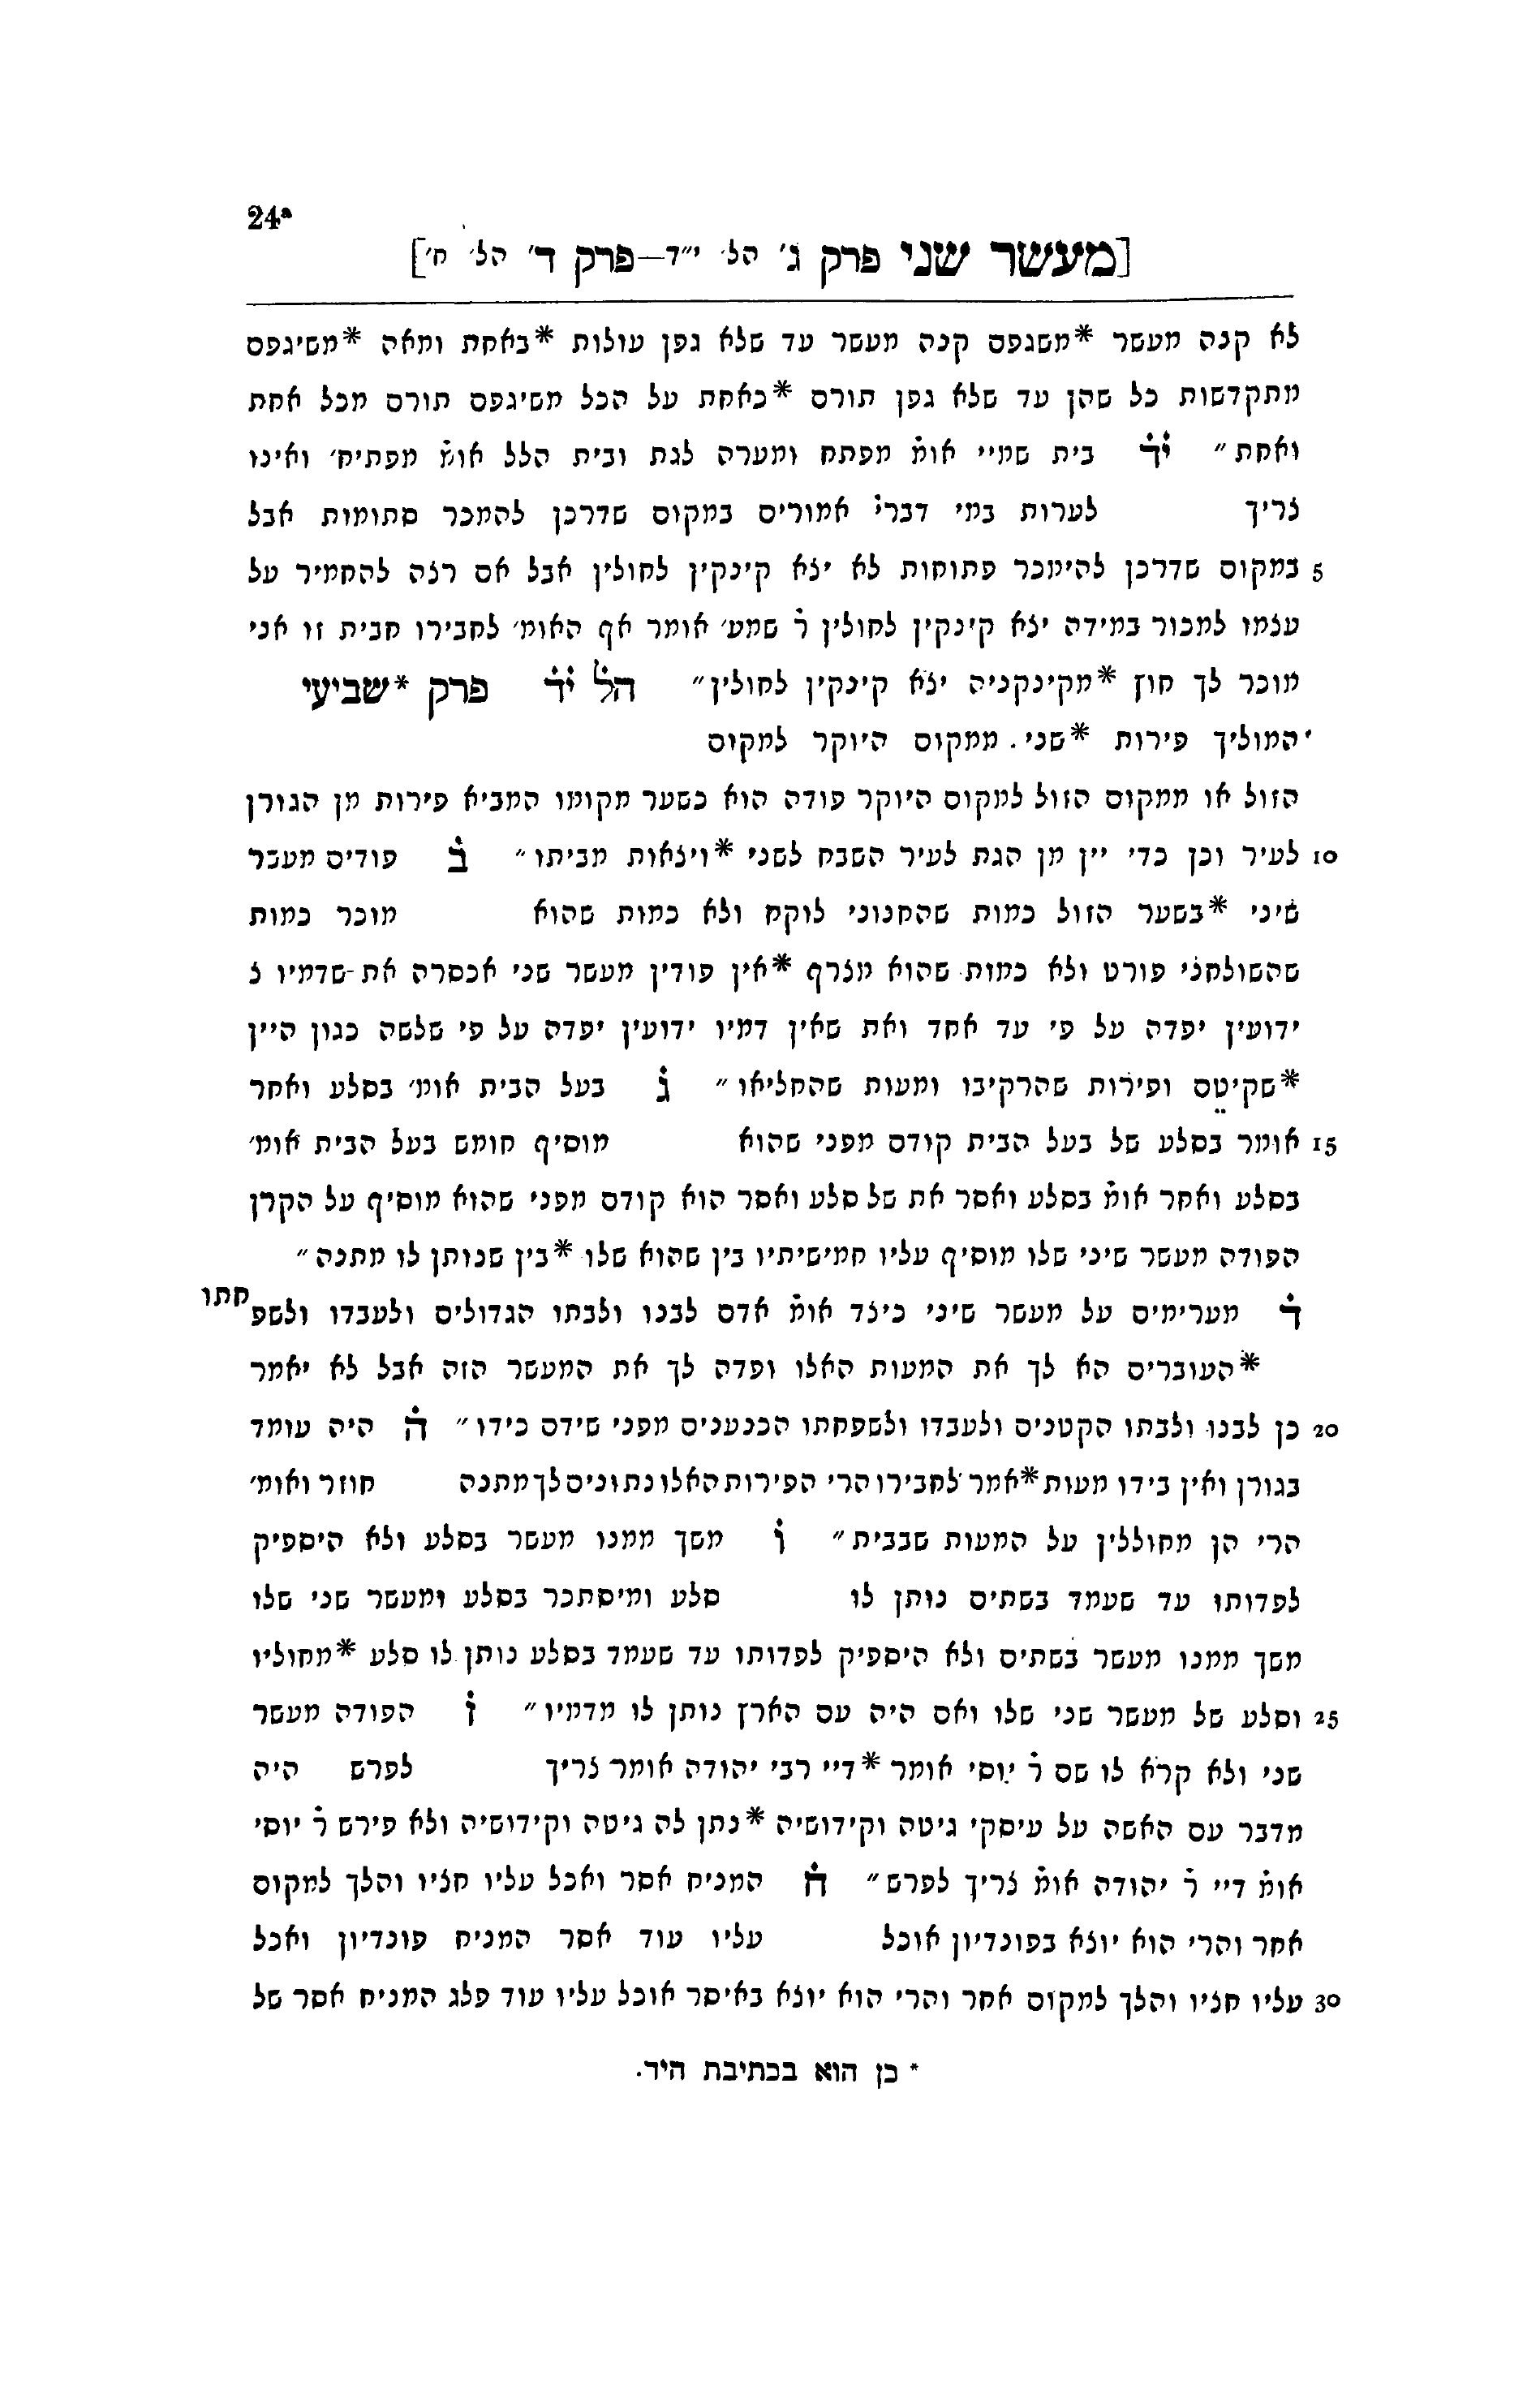 24ᵃ
[מעשר שני פרק ג׳ הל׳ י״ד—פרק ד׳ הל׳ ח׳]
לא קנה מעשר *משגפס קנה מעשר עד שלא גפן עולות *באחת ומאה *משיגפס
מתקדשות כל שהן עד שלא גפן תורם *כאחת על הכל משיגפס תורם מכל אחת
ואחת ״ יד בית שמיי אומ̇ מפתח ומערה לגת ובית הלל אומ̇ מפתיח׳ ואינו
צריך לערות במי דברי̇ אמורים במקום שדרכן להמכר סתומות אבל
5 במקום שדרכן להימכר פתוחות לא יצא קינקין לחולין אבל אם רצה להחמיר על
עצמו למכור במידה יצא קינקין לחולין ר̇ שמע׳ אומר אף האומ׳ לחבירו חבית זו אני
מוכר לך חוץ *מקינקניה יצא קינקין לחולין״ הל̇ יד̇ פרק *שביעי
המוליך פירות *שני . ממקום היוקר למקום
הזול או ממקום הזול למקום היוקר פודה הוא כשער מקומו המביא פירות מן הגורן
10 לעיר וכן כדי יין מן הגת לעיר השבח לשני *ויצאות מביתו ״ ב̇ פודים מעשר
שיני *בשער הזול כמות שהחנוני לוקח ולא כמות שהוא מוכר כמות
שהשולחני פורט ולא כמות שהוא מצרף *אין פודין מעשר שני אכסרה את שדמיו צ
ידועין יפדה על פי עד אחד ואת שאין דמיו ידועין יפדה על פי שלשה כגון היין
*שקיטס ופירות שהרקיבו ומעות שהחליאו ״ ג̇ בעל הבית אומ׳ בסלע ואחר
15 אומר בסלע של בעל הבית קודם מפני שהוא מוסיף חומש בעל הבית אומ׳
בסלע ואחר אומ̇ בסלע ואסר את של סלע ואסר הוא קודם מפני שהוא מוסיף על הקרן
הפודה מעשר שיני שלו מוסיף עליו חמישיתיו בין שהוא שלו *בין שנותן לו מתנה ״
ד̇ מערימים על מעשר שיני כיצד אומ̇ אדם לבנו ולבתו הגדולים ולעבדו ולשפ חתו
*העוברים הא לך את המעות האלו ופדה לך את המעשר הזה אבל לא יאמר
20 כן לבנו ולבתו הקטנים ולעבדו ולשפחתו הכנענים מפני שידם כידו ״ ה̇ היה עומד
בגורן ואין בידו מעות *אמר לחבירו הרי הפירות האלו נתונים לך מתנה חוזר ואומ׳
הרי הן מחוללין על המעות שבבית ״ ו̇ משך ממנו מעשר בסלע ולא היספיק
לפדותו עד שעמד בשתים נותן לו סלע ומיסתכר בסלע ומעשר שני שלו
משך ממנו מעשר בשתים ולא היספיק לפדותו עד שעמד בסלע נותן לו סלע *מחוליו
25 וסלע של מעשר שני שלו ואם היה עם הארץ נותן לו מדמיו ״ ז̇ הפודה מעשר
שני ולא קרא לו שם ר̇ יוסי אומר *דיי רבי יהודה אומר צריך לפרש היה
מדבר עם האשה על עיסקי גיטה וקידושיה *נתן לה גיטה וקידושיה ולא פירש ר̇ יוסי
אומ̇ דיי ר̇ יהודה אומ̇ צריך לפרש ״ ח̇ המניח אסר ואכל עליו חציו והלך למקום
אחר והרי הוא יוצא בפונדיון אוכל עליו עוד אסר המניח פונדיון ואכל
30 עליו חציו והלך למקום אחר והרי הוא יוצא באיסר אוכל עליו עוד פלג המניח אסר של
* כן הוא בכתיבת היד.